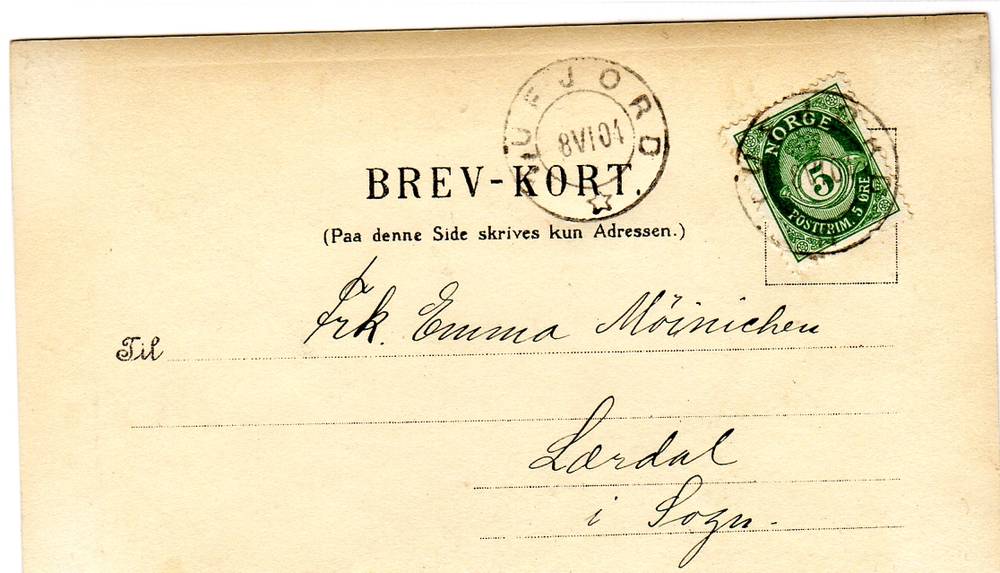 8 VI 04
NORGE
5
POSTFRIM. 5 ØRE
BREV-KORT.
(Paa denne Side skrives kun Adressen.)
Til Frk. Emma Möinichen
Lærdal
i Sogn.